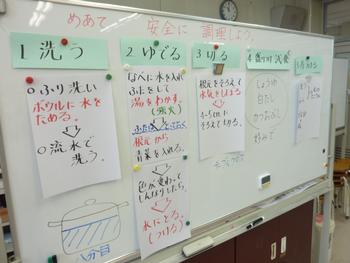 めあて 安全に調理しよう。
1 洗う
○ふり洗い
ボウルに水を
ためる。
○流水で
洗う。
八分目
2 ゆでる
なべに水を入れ
ふたをして
湯をわかす。
(強火)
根元から
青菜を入れる。
色が変わって
しんなりしたら、
水にとる。
(つける)
3 切る
根元をそろえて
水気をしぼる
4~5cmに
そろえて切る。
しょうゆ
白だし
かつおぶし
好みで